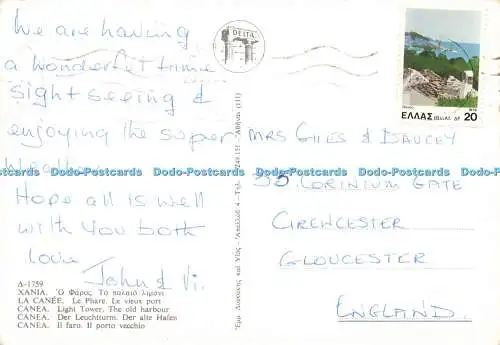 We are having
a wonderful time
sightseeing &
enjoying the super
weather.
Hope all is well
with you both
love
John & Vi.
Δ-1759
ΧΑΝΙΑ. Ὁ Φάρος. Τὸ παλαιὸ λιμάνι
LA CANÉE. Le Phare. Le vieux port
CANEA. Light Tower. The old harbour
CANEA. Der Leuchtturm. Der alte Hafen
CANEA. Il faro. Il porto vecchio
DELTA
ΕΛΛΑΣ HELLAS ΔΡ 20
MRS GILES & DAUCEY
35 CORINIUM GATE
CIRENCESTER
GLOUCESTER
ENGLAND.
Dodo-Postcards Dodo-Postcards Dodo-Postcards Dodo-Postcards Dodo-Postcards Dodo-Postcards